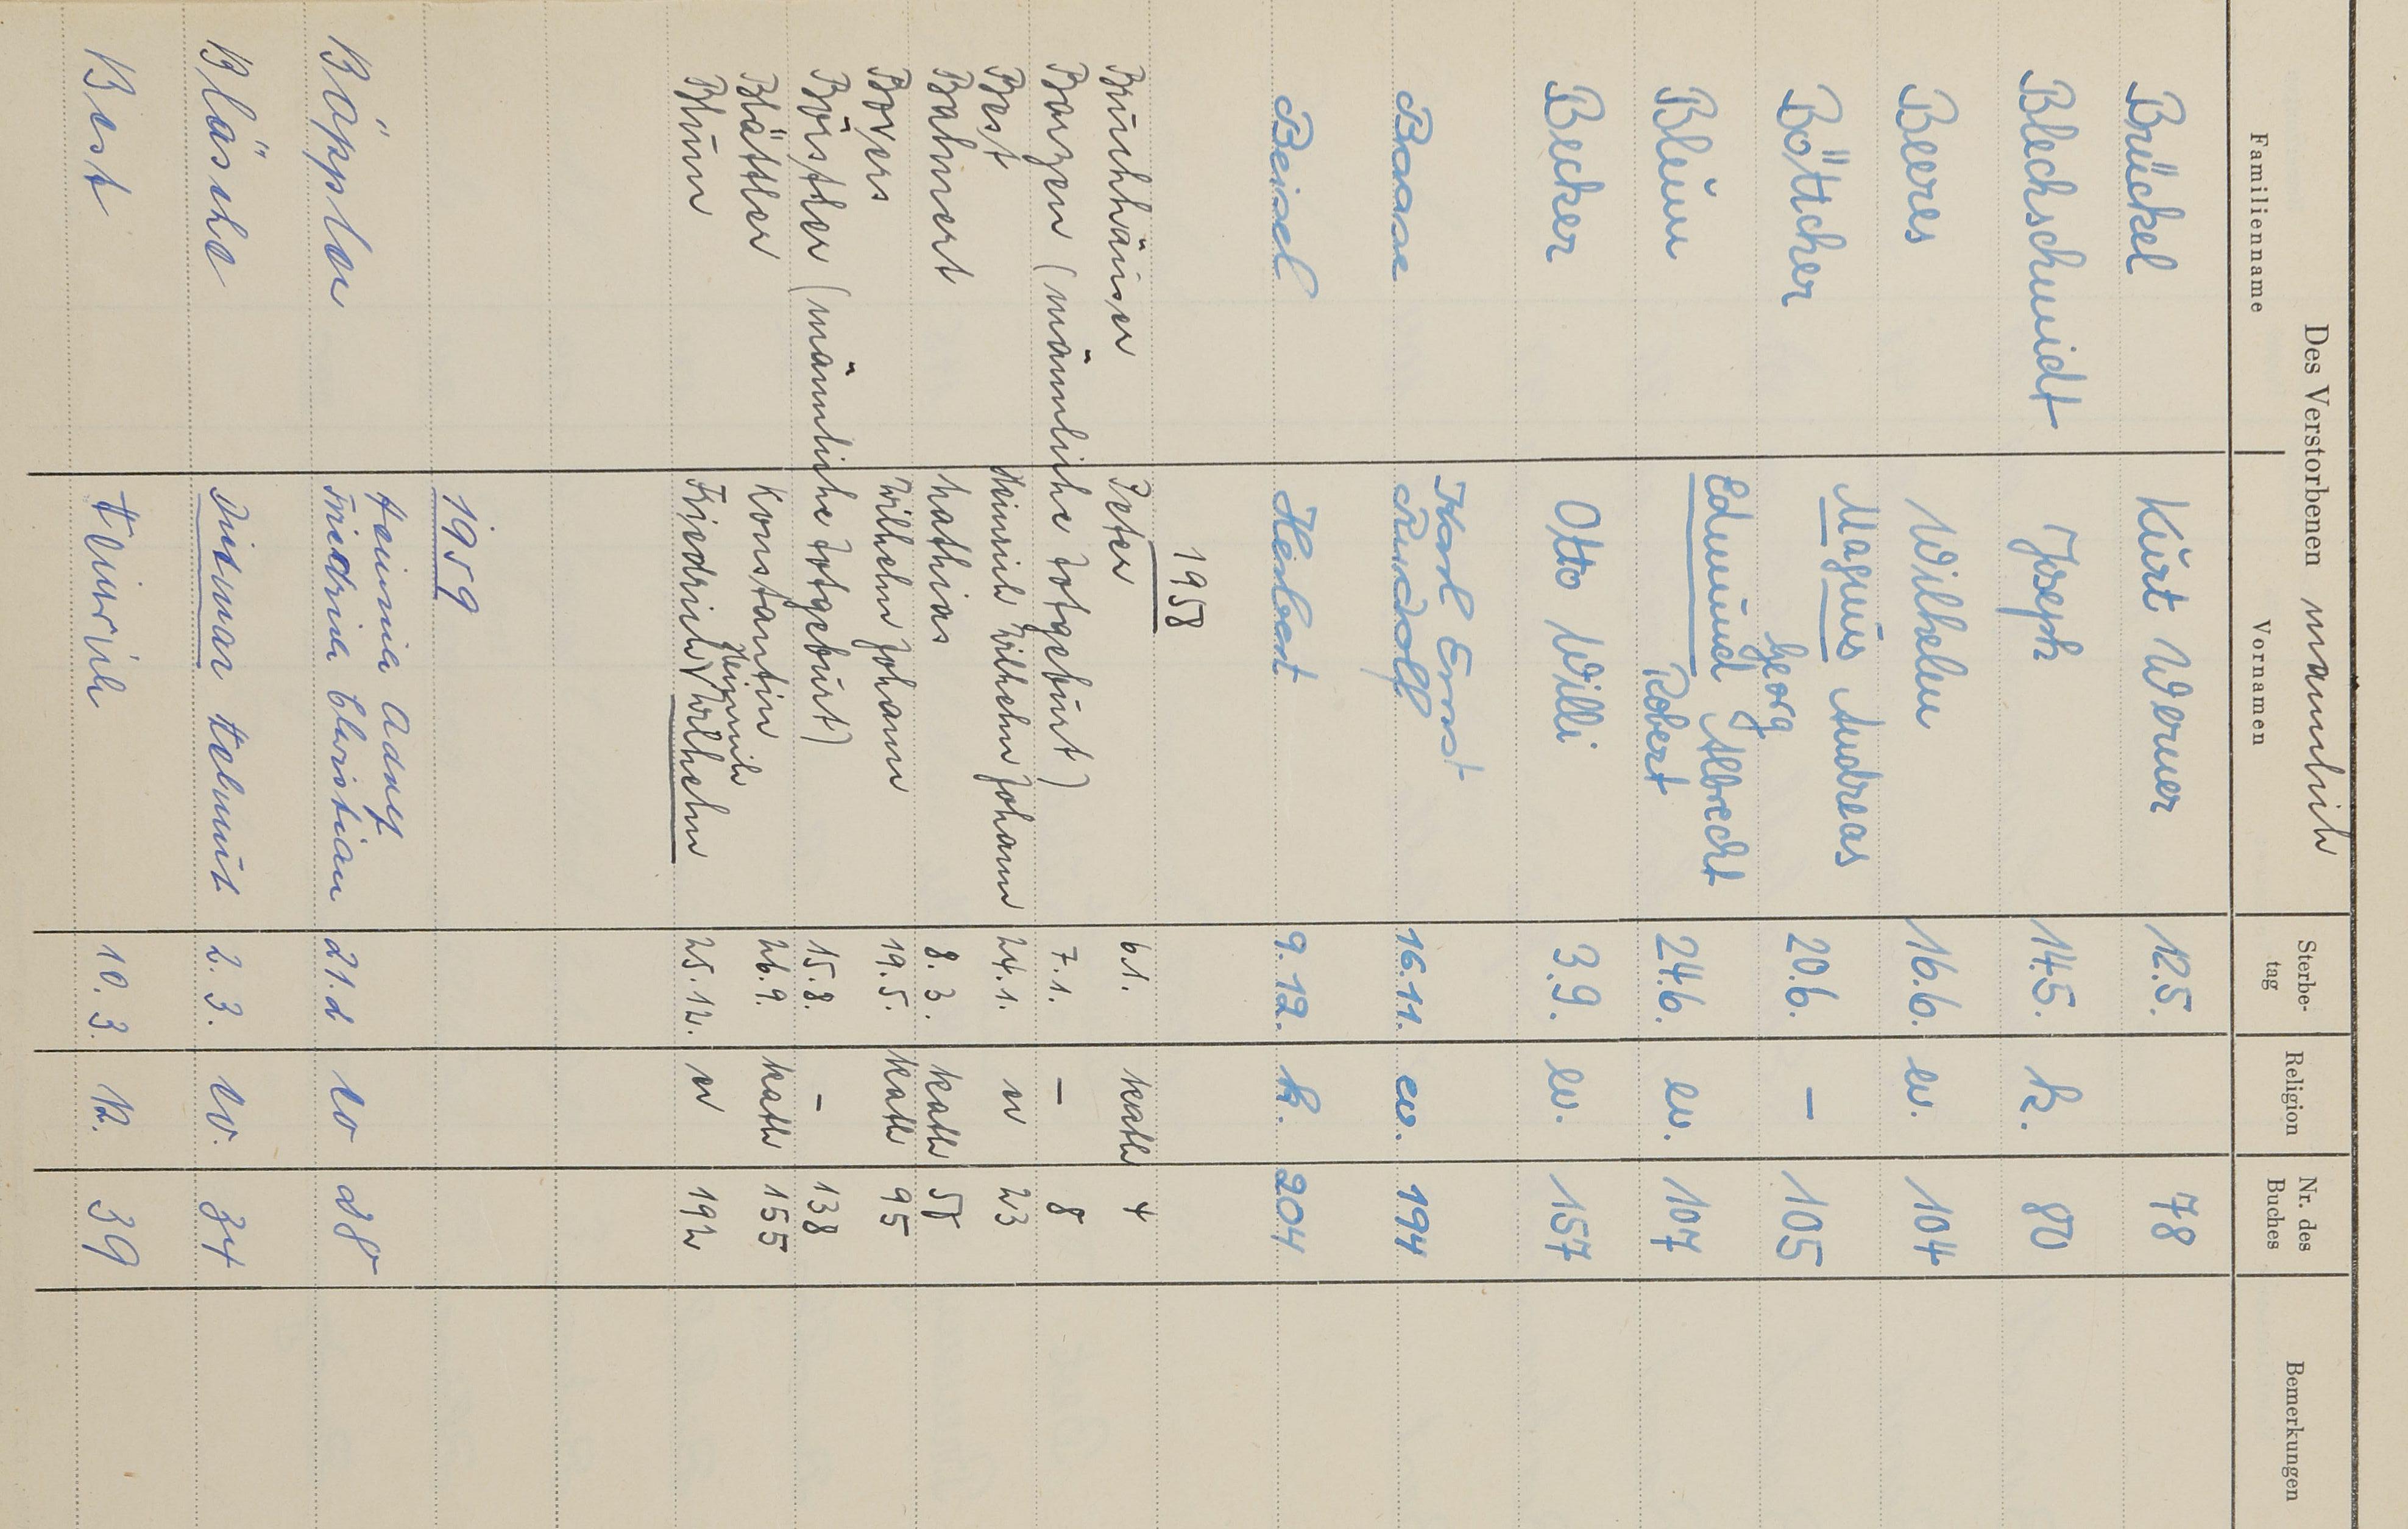 Des Verstorbenen männlich
Familienname Vornamen Sterbe-tag Religion Nr. des Buches Bemerkungen
Brückel Kurt Werner 12.5. 78
Blechschmidt Joseph 14.5. k. 80
Beeres Wilhelm 16.6. ev. 104
Böttcher Magnus Andreas Georg 20.6. – 105
Blum Edmund Albrecht Robert 24.6. ev. 107
Becker Otto Willi 3.9. ev. 157
Baase Karl Ernst Rudolf 16.11. ev. 194
Beisel Herbert 9.12. k. 204
1958
Bruchhäuser Peter 6.1. kath 4
Barzen (männliche Totgeburt) 7.1. – 8
Bast Heinrich Wilhelm Johann 24.1. ev 23
Bahnert Mathias 8.3. kath 58
Boyers Wilhelm Johann 19.5. kath 95
Börster (männliche Totgeburt) 15.8. – 138
Blätter Konstantin 26.9. kath 155
Blum Friedrich Heinrich Wilhelm 25.12. ev 192
1959
Böppler Heinrich Adolf
Friedrich Christian 21.2 ev 28
Bläsche Dietmar Helmut 2.3. ev. 34
Best Heinrich 10.3. k. 39